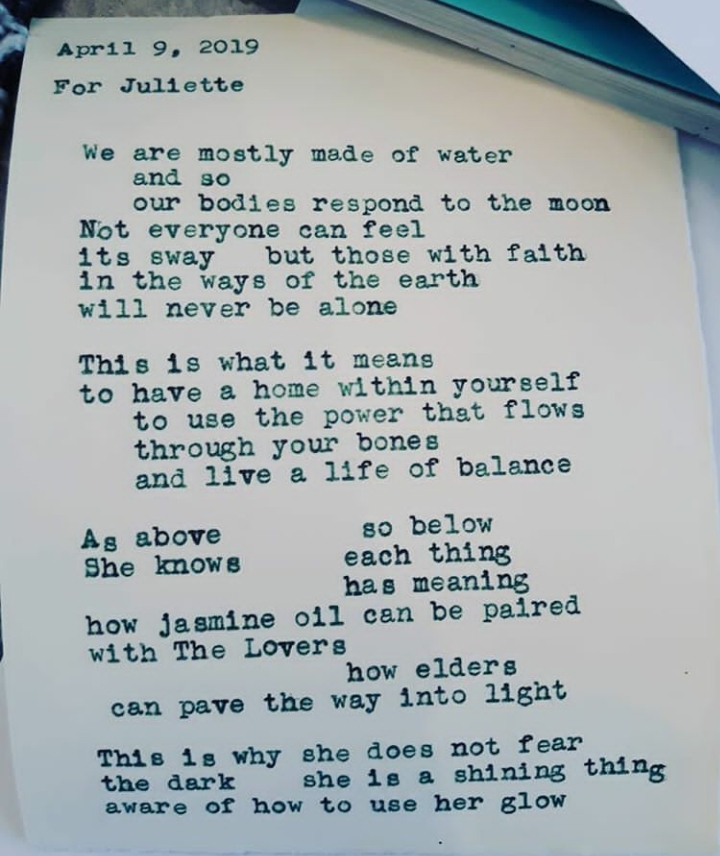 April 9, 2019
For Juliette
We are mostly made of water
and so
our bodies respond to the moon
Not everyone can feel
its sway but those with faith
in the ways of the earth
will never be alone
This is what it means
to have a home within yourself
to use the power that flows
through your bones
and live a life of balance
As above so below
She knows each thing
has meaning
how jasmine oil can be paired
with The Lovers
how elders
can pave the way into light
This is why she does not fear
the dark she is a shining thing
aware of how to use her glow